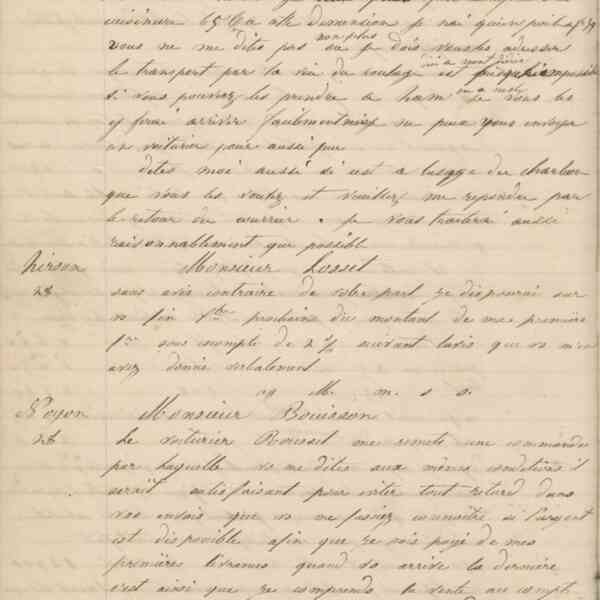 cuisinière 65 c a cette dimension je n'ai qu'un
non plus
vous ne me dites pas ou je dois vous les adresser
le transport par la voie du roulage est
si vous pouviez les prendre a ham je vous les
y ferai arriver facilement mais ne peux vous envoyer
un voiturier pour aussi peu
dites moi aussi si c'est a lusage du charbon
que vous les voulez et veuillez me repondre par
le retour du courrier . Je vous traiterai aussi
raisonnablement que possible
hirson Monsieur Losset
28 sans avis contraire de votre part je disposerai sur
vo fin prochain du montant de ma première
fre sous escompte de 2 % suivant lavis que vo m'en
avez donné verbalement
M. m. s s.
Noyon Monsieur Bouisson
28 Le voiturier Rousset me remet une commande
par laquelle vo me dites aux mêmes conditions il
serait satisfaisant pour eviter tout retard dans
vos envois que vo me fassiez connaître si l'argent
est disponible afin que je sois payé de mes
premières livraisons quand vo arrive la dernière
c'est ainsi que je comprends la vente au compt